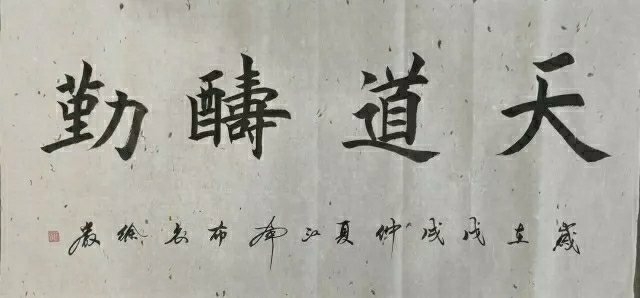 天道醻勤
歲在戊戌仲夏江南布衣徐